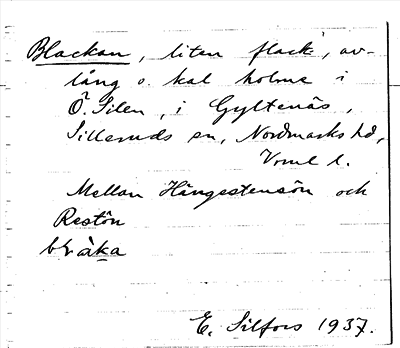 Blackan, liten flack, av-
lång o. kal holme i
Ö. Silen, i Gyltenäs,
Silleruds sn, Nordmarks hd,
Vrml l.
Mellan Hängestensön och
Restön
E. Silfors 1937.